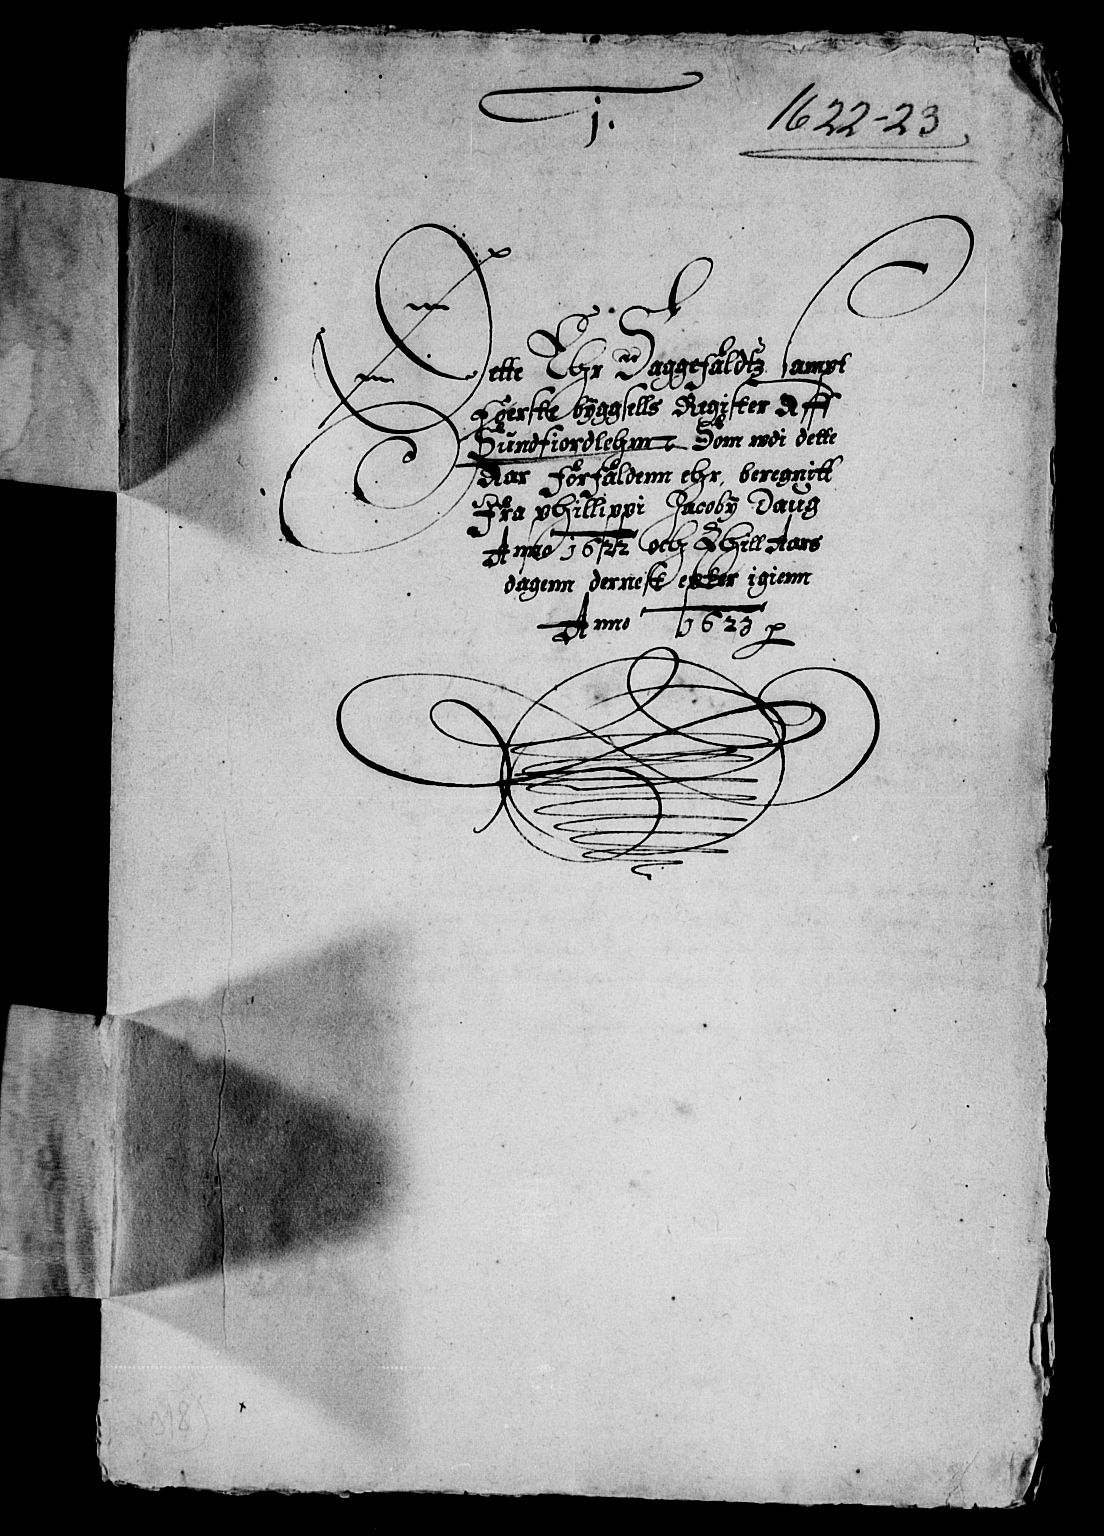 j.
1622-23
Dette Ehr Saggefaldtz sampt
Förste byggsells Register Aff
Sundfiordlehnn Som udi dette
Aar forfaldenn ehr, beregnitt
Fra Phillippi Jacoby Daug
Anno 1622 och Thill Aars
dagenn dernest epter igienn
Anno 1623